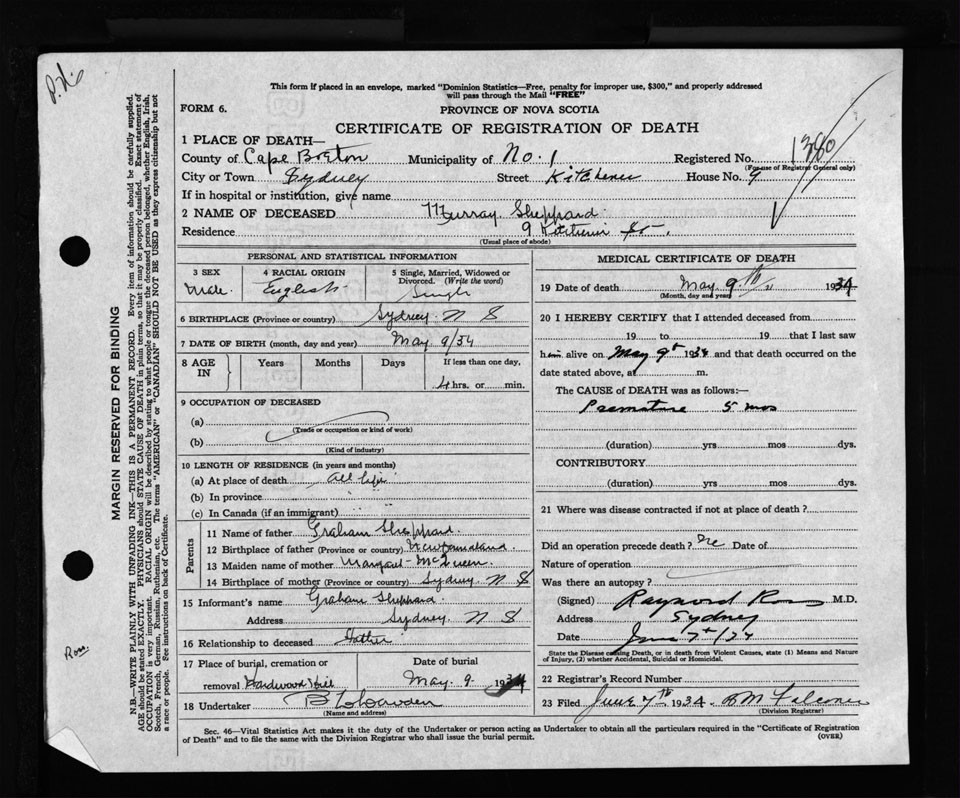 P.N.
This form if placed in an envelope, marked "Dominion Statistics—Free, penalty for improper use, $300," and properly addressed
will pass through the Mail "FREE"
FORM 6. PROVINCE OF NOVA SCOTIA
CERTIFICATE OF REGISTRATION OF DEATH
1 PLACE OF DEATH—
County of Cape Breton Municipality of No. 1 Registered No. 1380
(For use of Registrar General only)
City or Town Sydney Street Kitchener House No. 9
If in hospital or institution, give name
2 NAME OF DECEASED Murray Sheppard
Residence 9 Kitchener St.
(Usual place of abode)
PERSONAL AND STATISTICAL INFORMATION
3 SEX 4 RACIAL ORIGIN 5 Single, Married, Widowed or
Divorced. (Write the word)
Male English Single
6 BIRTHPLACE (Province or country) Sydney N S
7 DATE OF BIRTH (month, day and year) May 9/34
8 AGE IN Years Months Days If less than one day,
4 hrs. or min.
9 OCCUPATION OF DECEASED
(a)
(Trade or occupation or kind of work)
(b)
(Kind of industry)
10 LENGTH OF RESIDENCE (in years and months)
(a) At place of death all life
(b) In province " "
(c) In Canada (if an immigrant) " "
Parents
11 Name of father Graham Sheppard
12 Birthplace of father (Province or country) Newfoundland
13 Maiden name of mother Margaret McQueen
14 Birthplace of mother (Province or country) Sydney N S
15 Informant's name Graham Sheppard
Address Sydney N S
16 Relationship to deceased Father
17 Place of burial, cremation or Date of burial
removal Hardwood Hill May 9 1934
18 Undertaker
(Name and address)
MEDICAL CERTIFICATE OF DEATH
19 Date of death May 9th 1934
(Month, day and year)
20 I HEREBY CERTIFY that I attended deceased from
19 to 19 that I last saw
him alive on May 9th 1934 and that death occurred on
date stated above, at m.
The CAUSE of DEATH was as follows:—
Premature 5 mos
(duration) yrs mos dys.
CONTRIBUTORY
(duration) yrs mos dys.
21 Where was disease contracted if not at place of death?
Did an operation precede death? no Date of
Nature of operation
Was there an autopsy?
(Signed) Raymond Ross M.D.
Address Sydney
Date June 7th/34
State the Disease causing Death, or in death from Violent Causes, state (1) Means and Nature
of Injury, (2) whether Accidental, Suicidal or Homicidal.
22 Registrar's Record Number
23 Filed June 7th 1934
(Division Registrar)
Sec. 46—Vital Statistics Act makes it the duty of the Undertaker or person acting as Undertaker to obtain all the particulars required in the "Certificate of Registration
of Death" and to file the same with the Division Registrar who shall issue the burial permit. (OVER)
MARGIN RESERVED FOR BINDING
N.B.—WRITE PLAINLY WITH UNFADING INK—THIS IS A PERMANENT RECORD. Every item of information should be carefully supplied.
AGE should be stated EXACTLY. PHYSICIANS should STATE CAUSE OF DEATH in plain terms, so that it may be properly classified. Exact statement of
OCCUPATION is very important. RACIAL ORIGIN will be described by stating to what people or tongue the deceased person belonged, whether English, Irish,
Scotch, French, German, Russian, Ruthenian, etc. The terms "AMERICAN" or "CANADIAN" SHOULD NOT BE USED as they express citizenship but not
a race or people. See instructions on back of Certificate.
Ross.